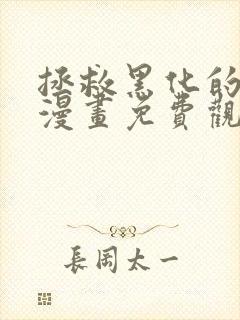 拯救黑化的
漫畫免費觀
長岡太一